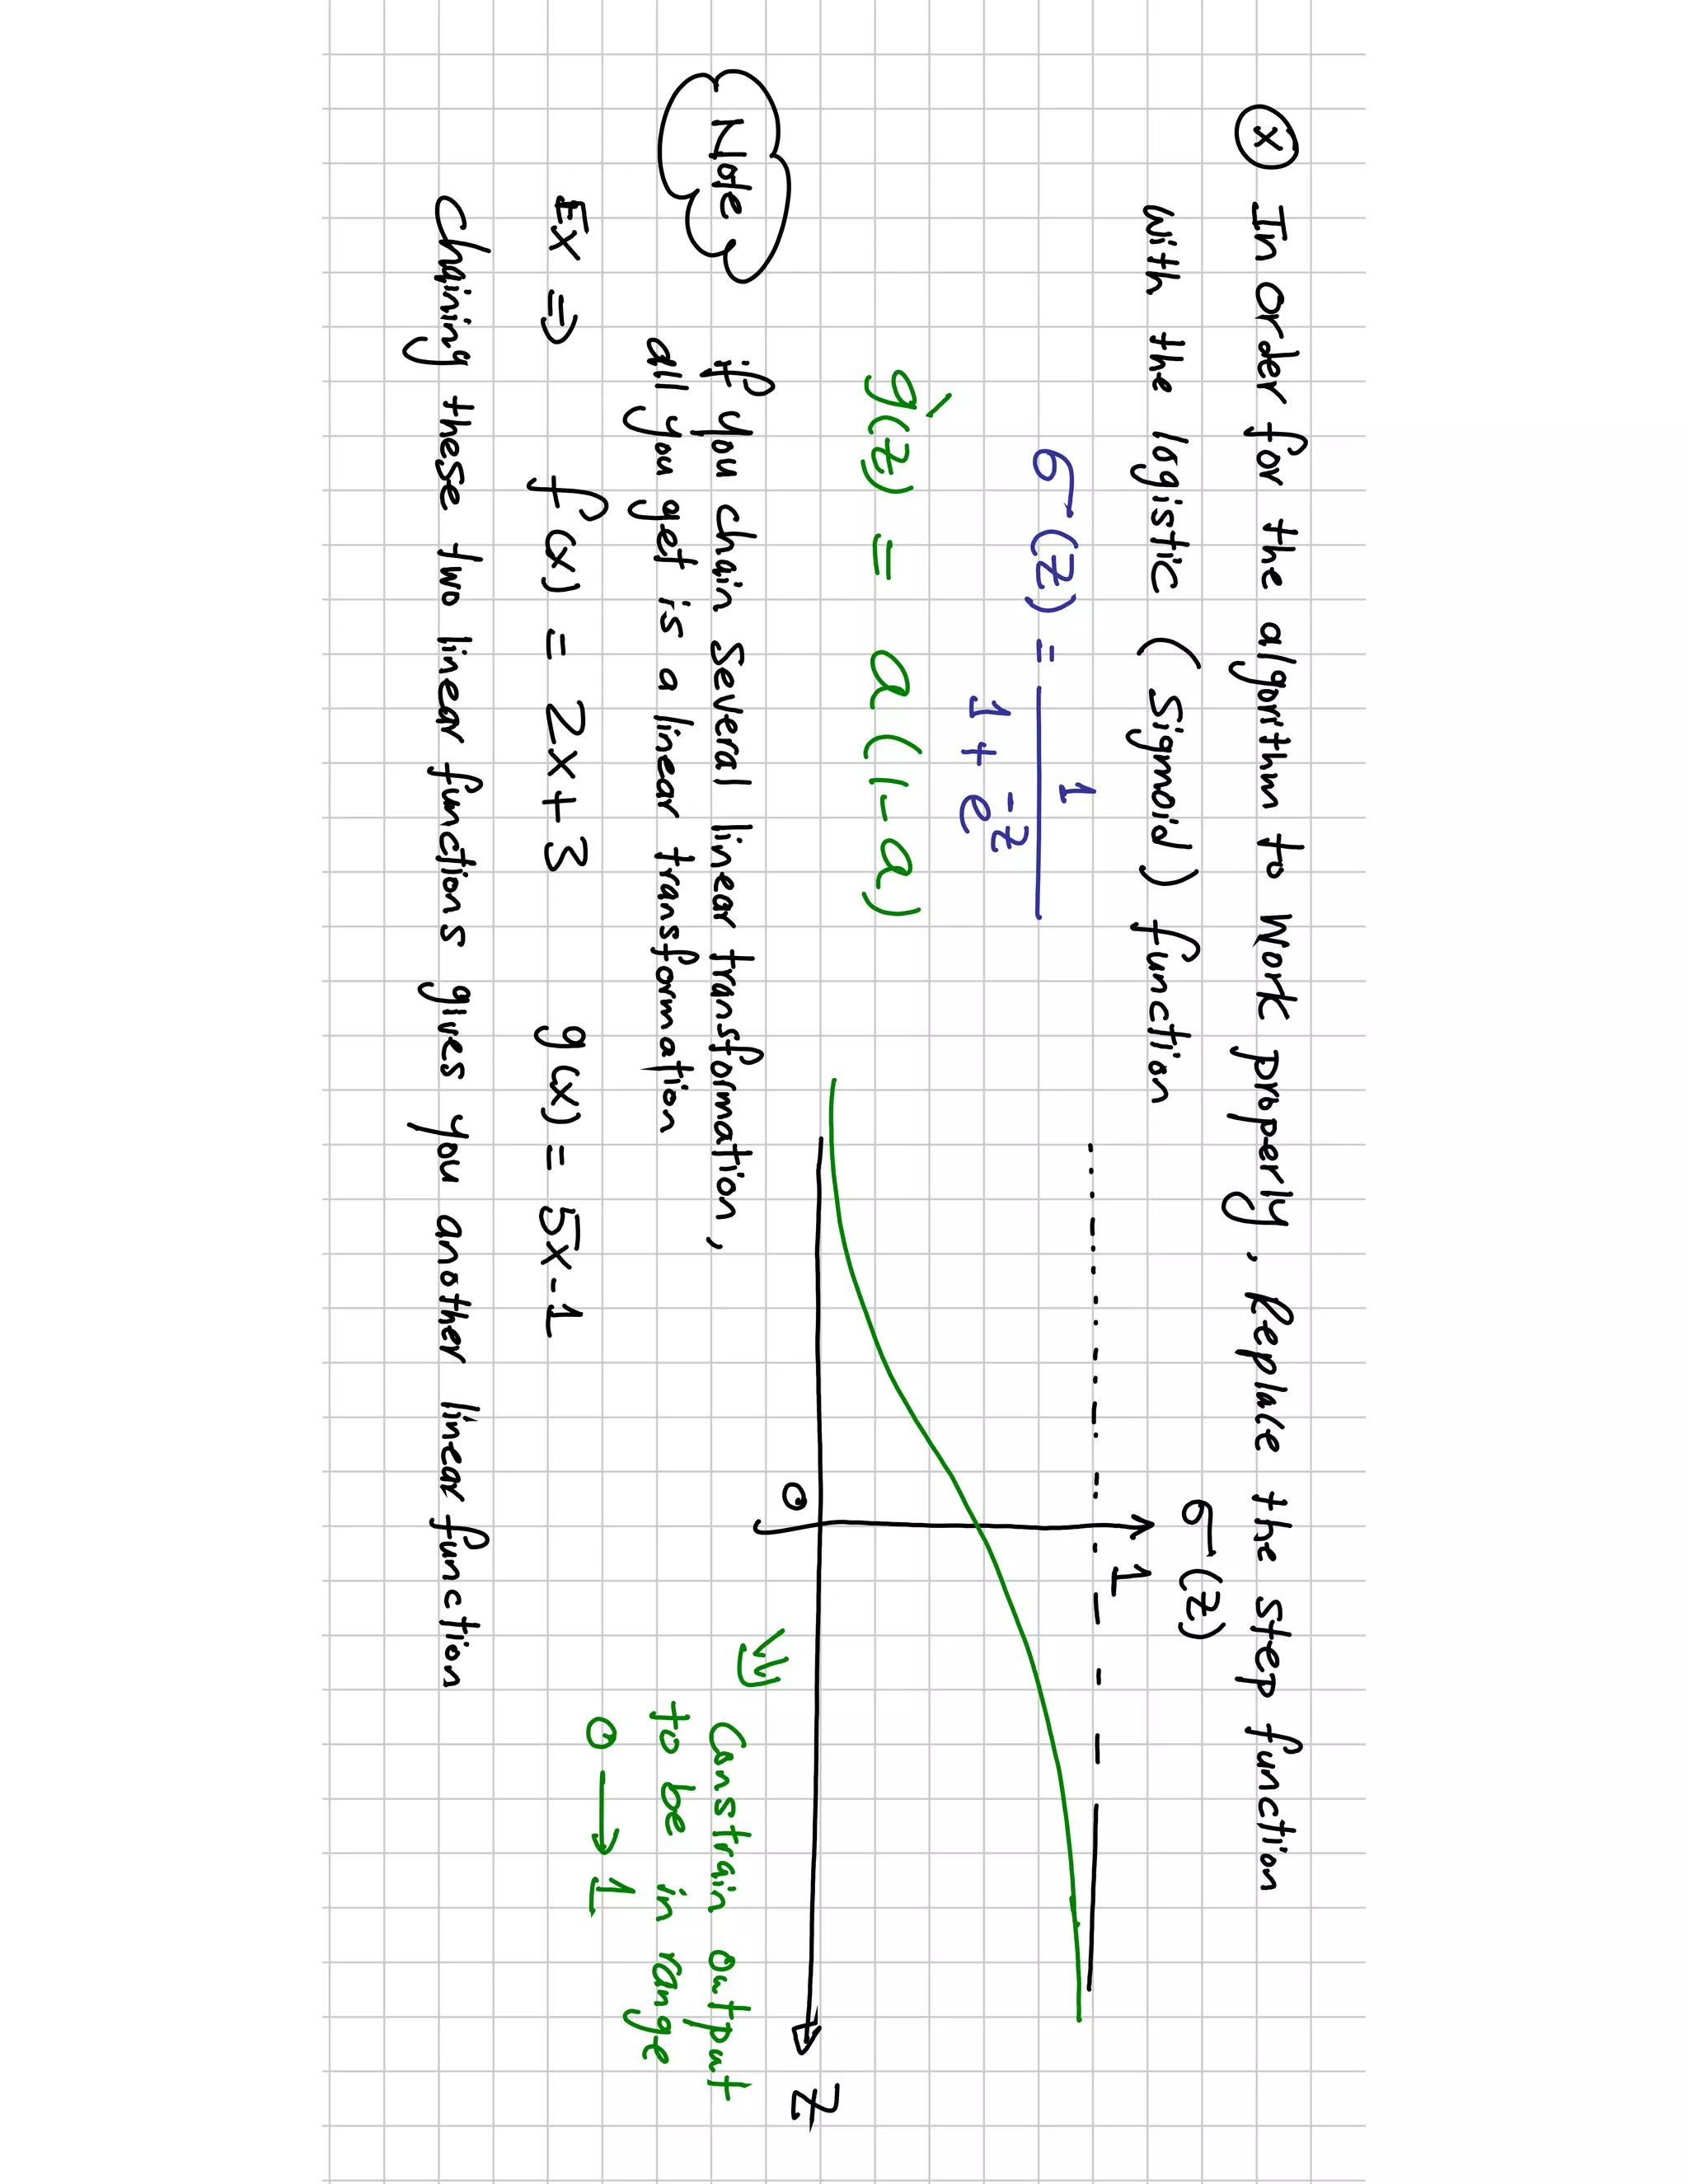 (x) In order for the algorithm to work properly, Replace the step function
with the logistic (Sigmoid) function
σ(z) = 1 / (1 + e^-z)
g'(z) = a(1-a)
σ(z)
1
0
z
=> Constrain output
to be in range
0 → 1
Note
if you chain several linear transformation,
all you get is a linear transformation
EX => f(x) = 2x+3 g(x) = 5x-1
Chaining these two linear functions gives you another linear function